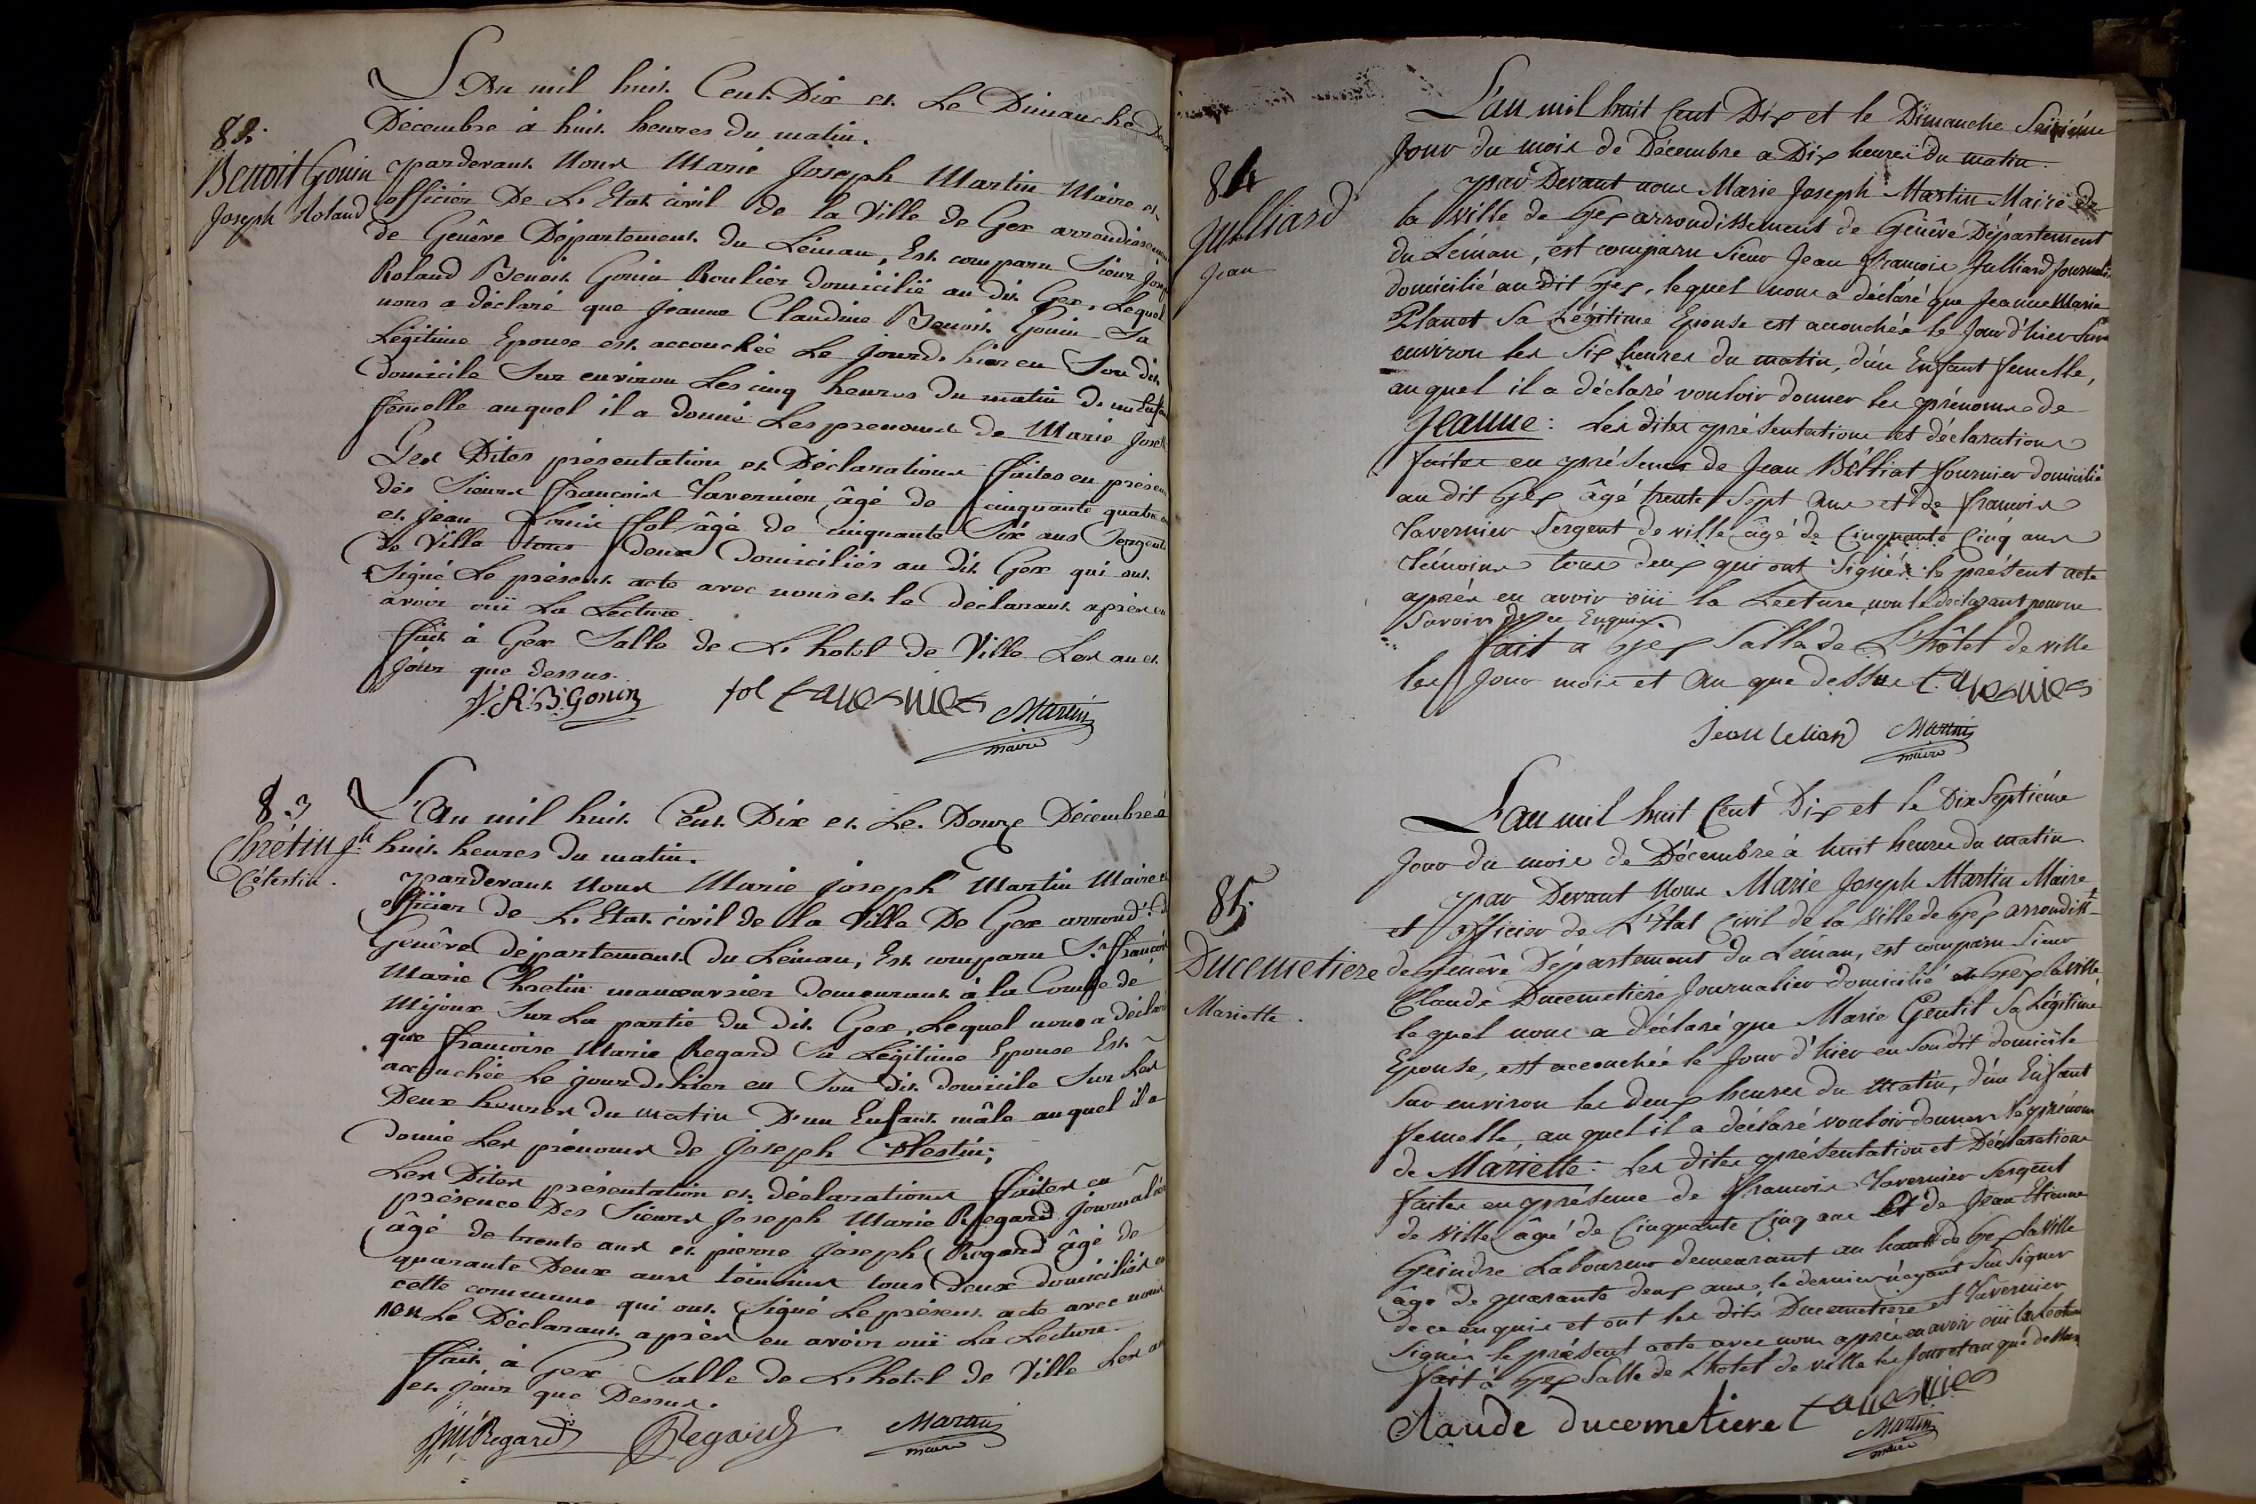 L'An mil huit Cent Dix et Le Dimanche
Décembre à huit heures du matin.
82.
Benoit Gonin
Joseph Roland
pardevant Nous Marie Joseph Martin Maire et
officier De L'Etat civil de la Ville de Gex arrondissement
de Genève Département du Léman, Est comparu Sieur
Roland Benoit Gonin Roulier domicilié au dit Gex, Lequel
nous a déclaré que Jeanne Claudine Benoit Gonin Sa
Légitime Epouse est accouchée Le jourd'hier en Son dit
domicile Sur environ Les cinq heures du matin
femelle auquel il a donné Les prenoms de Marie
Les Dites présentation et Déclarations faites en
dés Sieurs françois Tavernier âgé de cinquante quatre
et Jean Louis fol âgé de cinquante Six ans Sergents
de Ville tous deux Domiciliés au dit Gex qui ont
Signé Le présent acte avec nous et le déclarant après en
avoir ouï La Lecture.
fait à Gex Salle de L'hotel de Ville Les an et
jour que dessus.
J. R. B. Gonin fol tavernier Martin
maire
83
Chrétin Jh
Célestin.
L'An mil huit Cent Dix et Le Douze Décembre à
huit heures du matin.
pardevant Nous Marie Joseph Martin Maire et
officier de L'Etat civil de la Ville De Gex arrond.t
Genève département du Léman, Est comparu Sr françois
Marie Chretin manouvrier demeurant à la Combe de
Mijoux Sur La partie du dit Gex, Lequel nous a déclaré
que françoise Marie Regard Sa Légitime Epouse Est
accouchée Le jourd'hier en Son dit domicile Sur Les
Deux heures du matin D'un Enfant mâle auquel il a
donné Les prénoms de Joseph Célestin;
Les Dites présentation et déclarations faites en
présence Des Sieurs Joseph Marie Regard journalier
âgé de trente ans et pierre Joseph Regard âgé de
quarante Deux ans témoins tous Deux domiciliés en
cette commune qui ont Signé Le présent acte avec nous
non Le Déclarant après en avoir ouï La Lecture.
fait à Gex Salle de L'hotel de Ville Les an
et jour que Dessus.
Regard Regard Martin
maire
L'an mil huit Cent Dix et le Dimanche Seizième
Jour du mois de Décembre a Dix heures du matin.
84
Julliard
Jean
par Devant nous Marie Joseph Martin Maire de
la Ville de Gex arrondissement de Genêve Département
du Léman, est comparu Sieur Jean françois Julliard
domicilié au dit Gex, lequel nous a déclaré que Jeanne Marie
Planet Sa Légitime Epouse est accouchée le Jour d'hier Sur
environ les Six heures du matin, d'un Enfant femelle,
auquel il a déclaré vouloir donner les prénoms de
Jeanne: Les dites présentations et déclarations
faites en présence de Jean Billiat fournier domicilié
au dit Gex âgé trente Sept ans et de françois
Tavernier Sergent de ville âgé de Cinquante Cinq ans
témoins tous deux qui ont Signés le présent acte
après en avoir ouï la Lecture, non le déclarant pour ne
Savoir de ce Enquis.
fait a Gex Salle de L'hôtel de ville
les Jour mois et An que dessus tavernier
Martin
maire
L'an mil huit Cent Dix et le Dix Septième
Jour du mois de Décembre à huit heures du matin
85.
Ducemetiere
Mariette.
par Devant Nous Marie Joseph Martin Maire
et officier de L'Etat Civil de la Ville de Gex arrondisst
de Genêve Département du Léman, est comparu Sieur
Claude Ducemetiere Journalier domicilié a Gex la Ville
lequel nous a déclaré que Marie Gentil Sa Légitime
Epouse, est accouchée le Jour d'hier en Son dit domicile
Sur environ les deux heures du Matin, d'un Enfant
femelle, auquel il a déclaré vouloir donner le prénom
de Mariette: Les dites présentation et Déclarations
faites en présence de françois Tavernier Sergent
de Ville âgé de Cinquante Cinq ans Et de Jean Etienne
Geindre Laboureur demeurant au haut de Gex la Ville
âgé de quarante deux ans, le dernier n'ayant Su Signer
de ce enquis et ont les dits Ducemetiere et Tavernier
Signés le présent acte avec nous après en avoir ouï la Lecture
fait à Gex Salle de L'hotel de ville les Jour et an que dessus
Claude ducemetiere tavernier
Martin
maire